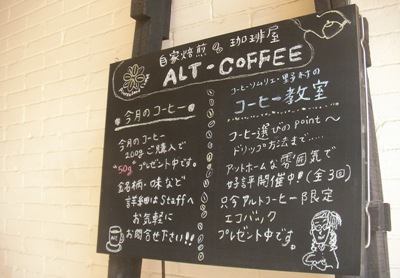 自家焙煎の珈琲屋
ALT-COFFEE
今月のコーヒー
今月のコーヒー
200gご購入で
"50g"プレゼント中です。
銘柄・味など
詳細はStaffへ
お気軽に
お問合せ下さい!!
コーヒーソムリエ・野村の
コーヒー教室
コーヒー選びのpoint〜
ドリップ方法まで・・・・
アットホームな雰囲気で
好評開催中!!(全3回)
只今アルトコーヒー限定
エコバック
プレゼント中です。